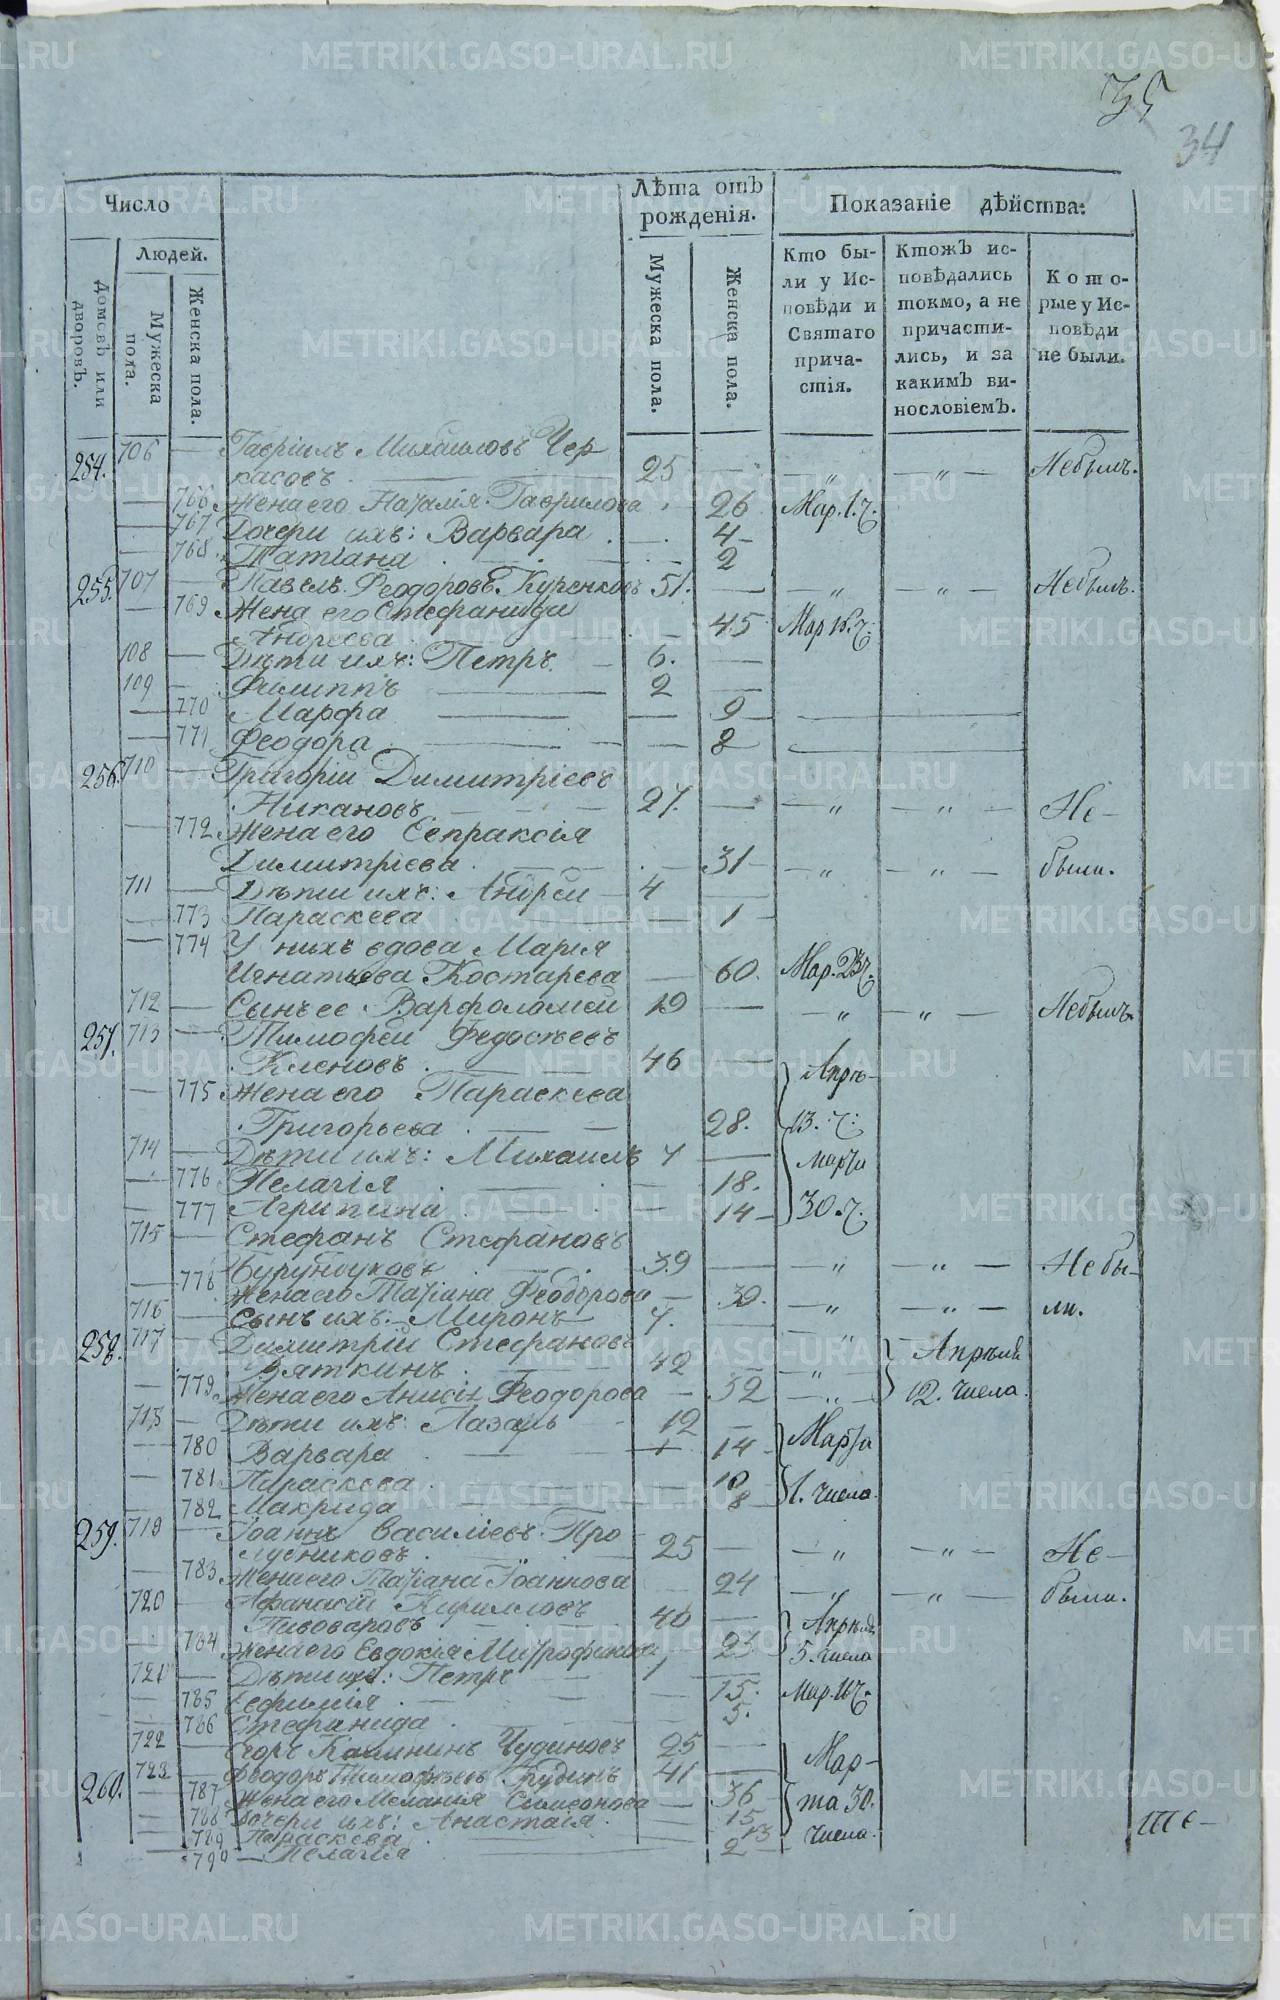 METRIKI.GASO-URAL.RU
35
34
Число
Лѣта отъ рожденія.
Показаніе дѣйства:
Людей.
Домовъ или дворовъ.
Мужеска пола.
Женска пола.
Мужеска пола.
Женска пола.
Кто были у Исповѣди и Святаго причастія.
Ктожъ исповѣдались токмо, а не причастились, и за какимъ винословіемъ.
Которые у Исповѣди не были.
254. 706 — Гавріилъ Михаиловъ Чер
касовъ 25 — „ — „ — Небылъ.
— 766 Жена его Наталія Гаврилова 26 Мар. 1. ч.
— 767 Дочери ихъ: Варвара 4
— 768 Татіана 2
255. 707 — Павелъ Феодоровъ Куренковъ 51. — „ — „ — Небылъ.
— 769 Жена его Стефанида
Андреева 45 Мар
708 — Дѣти ихъ: Петръ 6.
709 — Филиппъ 2
— 770 Марфа 9
— 771 Феодора 8
256. 710 — Григорій Димитріевъ
Никановъ 27. — „ — „ — Не-
— 772 Жена его Евпраксія
Димитріева 31 — „ — „ — были.
711 — Дѣти ихъ: Андрей 4
— 773 Параскева 1
— 774 У нихъ вдова Марія
Игнатьева Костарева 60. Мар. 23 ч.
712 — Сынъ ее Варфоломей 19 — „ — „ — Небылъ.
257. 713 — Тимофей Федосѣевъ
Кленовъ 46 Апрѣ-
— 775 Жена его Параскева
Григорьева 28. 13. ч.
714 — Дѣти ихъ: Михаилъ Марта
— 776 Пелагія 18.
— 777 Агрипина 14 30. ч.
715 — Стефанъ Стефановъ
Бурундуковъ 39 — „ — „ — Небы-
— 778 Жена его Татіана Феодорова 39.
716 — Сынъ ихъ: Миронъ 7. — „ — „ — ли.
258. 717 — Димитрій Стефановъ
Вяткинъ 42 — „ — Апрѣля
— 779 Жена его Анисія Феодорова — 32 12. числа.
718 — Дѣти ихъ: Лазарь 12
— 780 Варвара 14 Марта
— 781 Параскева 10 1. числа.
— 782 Макрида 8
259. 719 — Іоаннъ Василіевъ Про
лубниковъ 25 — „ — „ — Не-
— 783 Жена его Татіана Іоаннова 24 — „ — „ — были.
720 — Афанасій Кирилловъ
Пивоваровъ 40 Апрѣля
— 784 Жена его Евдокія Митрофанова 5. числа
721 — Дѣти ихъ: Петръ 1
— 785 Евфимія 15. Мар.
— 786 Стефанида 5.
722 — Егоръ Чудиновъ 25 Мар-
260. 723 — Феодоръ Тимофѣевъ Грудинъ 41
— 787 Жена его Меланія Симеонова 36 та 30.
— 788 Дочери ихъ: Анастасія 15
— 789 Параскева 13 числа.
— 790 — Пелагія 2